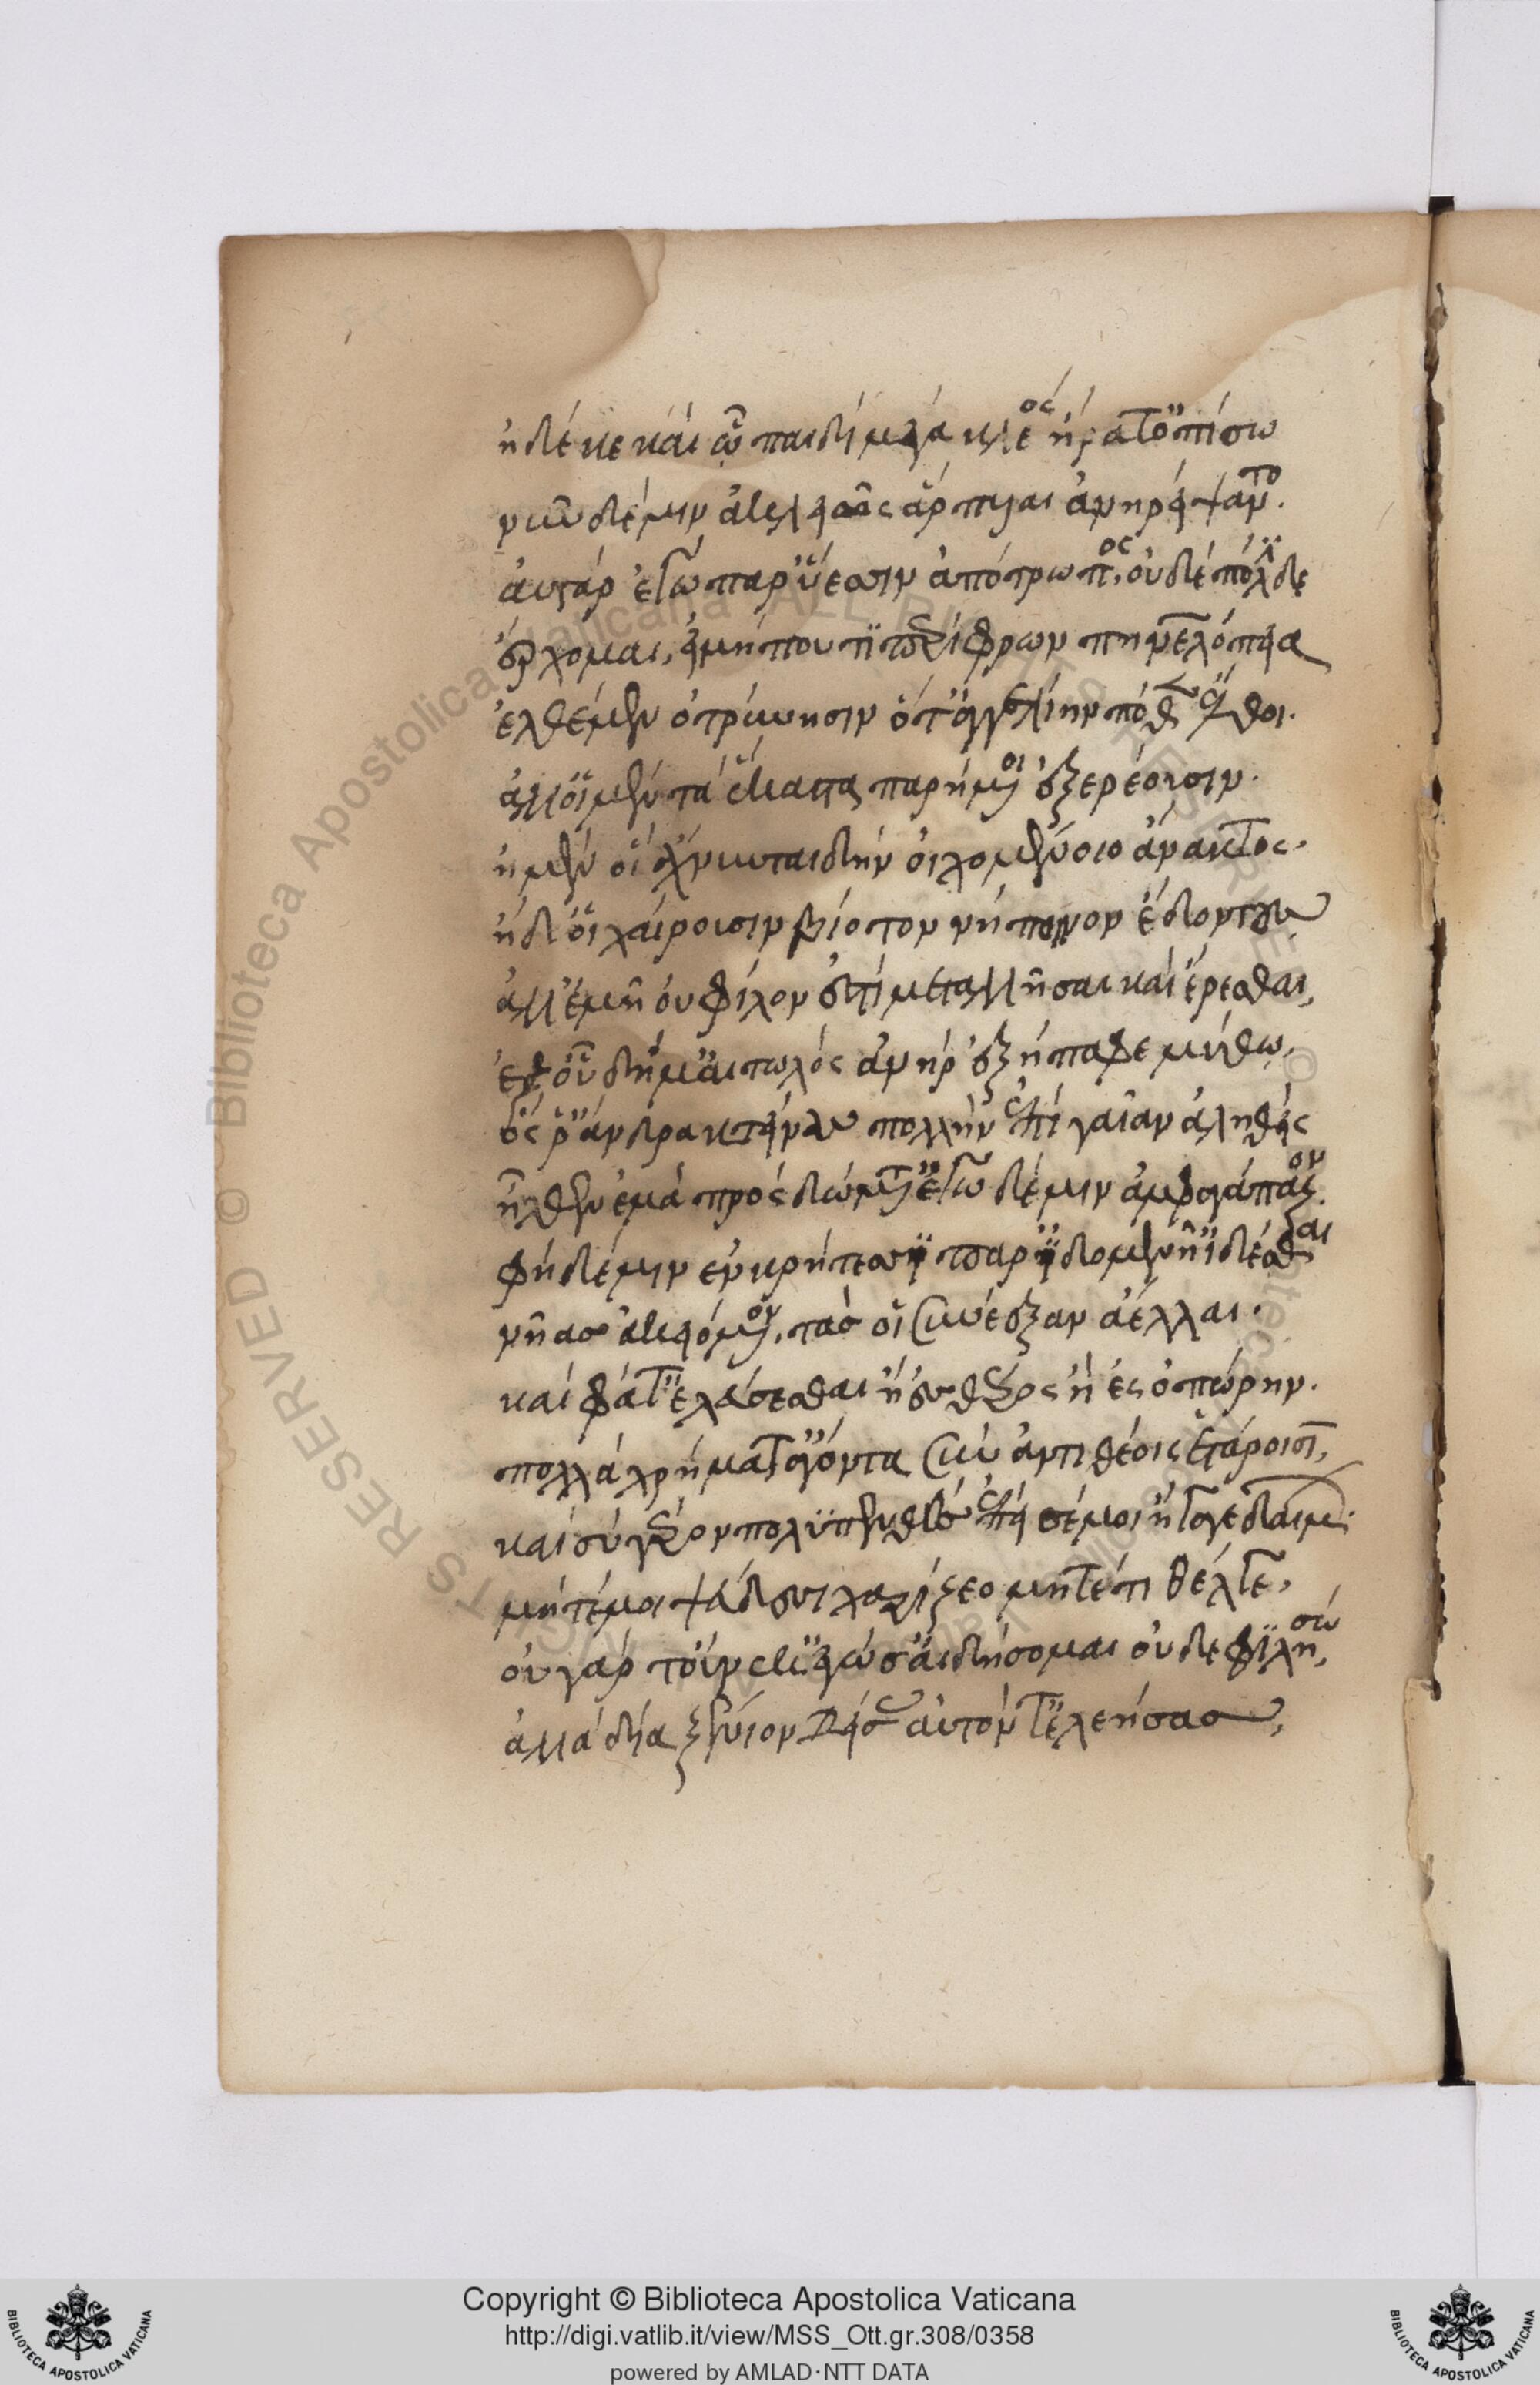 ἠδέ κε καὶ ᾧ παιδὶ μέγα κλέος ἤρατ' ὀπίσσω
νῦν δέ μιν ἀκλειῶς ἅρπυιαι ἀνηρείψαντο.
αὐτὰρ ἐγὼ παρ' ὕεσσιν ἀπότροπος, οὐδὲ πόλιν δὲ
ἔρχομαι, εἰ μή που τι περίφρων πηνελόπεια
ἐλθέμεν ὀτρύνησιν ὅτ' ἀγγελίην ποθεν ἔλθοι.
ἀλλ' οἱ μὲν τὰ ἕκαστα παρήμενοι ἐξερέουσιν.
ἠμὲν οἳ ἄχνυνται δὴν οἰχομένοιο ἄνακτος.
ἠδ' οἳ χαίρουσιν βίοτον νήποινον ἔδοντες
ἀλλ' ἐμοὶ οὐ φίλον ἐστὶ μεταλλῆσαι καὶ ἔρεσθαι,
ἐξ οὗ δή μ' αἰτωλὸς ἀνὴρ ἐξήπαφε μύθω,
ὅς ῥ' ἄνδρα κτείνας πολλὴν ἐπὶ γαῖαν ἀληθεὶς
ἦλθεν ἐμὰ πρὸς δώματ' ἐγὼ δέ μιν ἀμφαγάπαζον.
φῆ δέ μιν ἐν κρήτεσσι παρ' ἰδομενῆι ἰδέσθαι
νῆας ἀκειόμενον, τάς οἱ συνέαξαν ἄελλαι.
καὶ φάτ' ἐλεύσεσθαι ἢ ἐς θέρος ἢ ἐς ὀπώρην.
πολλὰ χρήματ' ἄγοντα σὺν ἀντιθέοις ἑτάροισι,
καὶ σὺ γέρον πολυπενθὲς ἐπεί σέ μοι ἤγαγε δαίμων.
μήτέ μοι ψεύδεσι χαρίζεο μήτέ τι θέλγε,
οὐ γὰρ τοὔνεκ' ἐγώ σ' αἰδήσομαι οὐδὲ φιλήσω,
ἀλλὰ δία ξένιον δείσας αὐτόν τ' ἐλεήσας,
Copyright © Biblioteca Apostolica Vaticana
http://digi.vatlib.it/view/MSS_Ott.gr.308/0358
powered by AMLAD·NTT DATA